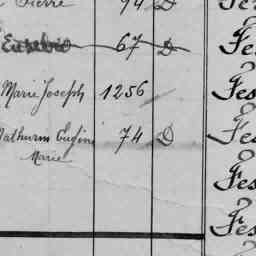 Pierre 94 D Fe
Eusebio 67 D Fe
Marie Joseph 1256 Fes
Mathurin Eugène 74 D Fes
Marie
Fes
Fes
Fes